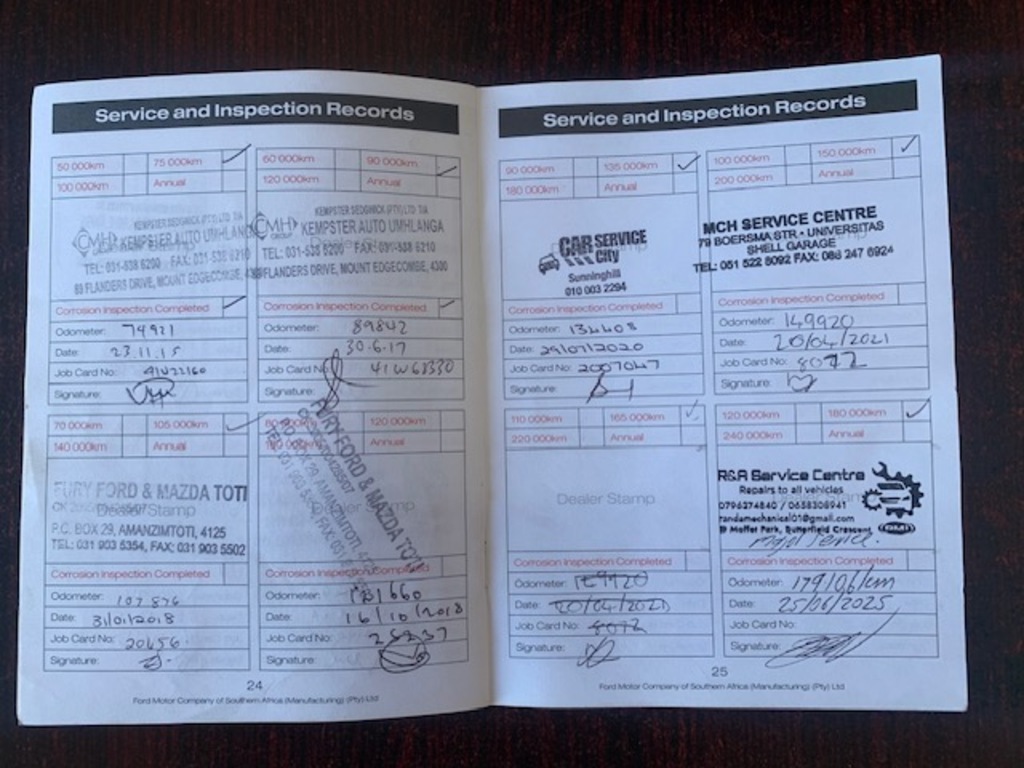 Service and Inspection Records
50 000km 75 000km
100 000km Annual
KEMPSTER SEDGWICK (PTY) LTD T/A
CMH KEMPSTER AUTO UMHLANGA
TEL: 031-538 6200 FAX: 031-538 6210
89 FLANDERS DRIVE, MOUNT EDGECOMBE, 4300
Corrosion Inspection Completed
Odometer: 74921
Date: 23.11.15
Job Card No:
Signature:
60 000km 90 000km
120 000km Annual
KEMPSTER SEDGWICK (PTY) LTD T/A
CMH KEMPSTER AUTO UMHLANGA
TEL: 031-538 6200 FAX: 031-538 6210
89 FLANDERS DRIVE, MOUNT EDGECOMBE, 4300
Corrosion Inspection Completed
Odometer: 89842
Date: 30-6-17
Job Card No:
Signature:
70 000km 105 000km
140 000km Annual
FURY FORD & MAZDA TOTI
Dealer Stamp
P.O. BOX 29, AMANZIMTOTI, 4125
TEL: 031 903 5354, FAX: 031 903 5502
Corrosion Inspection Completed
Odometer: 107876
Date: 31/01/2018
Job Card No: 20656
Signature:
80 000km 120 000km
160 000km Annual
FURY FORD & MAZDA TOTI
Corrosion Inspection Completed
Odometer:
Date: 16/10/2018
Job Card No:
Signature:
24
Ford Motor Company of Southern Africa (Manufacturing) (Pty) Ltd
Service and Inspection Records
90 000km 135 000km
180 000km Annual
CAR SERVICE
City
Sunninghill
010 003 2294
Corrosion Inspection Completed
Odometer: 134408
Date: 29/07/2020
Job Card No: 2007047
Signature:
100 000km 150 000km
200 000km Annual
MCH SERVICE CENTRE
79 BOERSMA STR - UNIVERSITAS
SHELL GARAGE
TEL: 051 522 8092 FAX: 086 247 6924
Corrosion Inspection Completed
Odometer: 149920
Date: 20/04/2021
Job Card No: 8072
Signature:
110 000km 165 000km
220 000km Annual
Dealer Stamp
Corrosion Inspection Completed
Odometer:
Date: 20/04/2021
Job Card No: 8072
Signature:
120 000km 180 000km
240 000km Annual
R&R Service Centre
Repairs to all vehicles
0796274840 / 0658308941
randamechanical01@gmail.com
Moffet Park, Butterfield Crescent
Major Service.
Corrosion Inspection Completed
Odometer: 179106/km
Date: 25/06/2025
Job Card No:
Signature:
25
Ford Motor Company of Southern Africa (Manufacturing) (Pty) Ltd